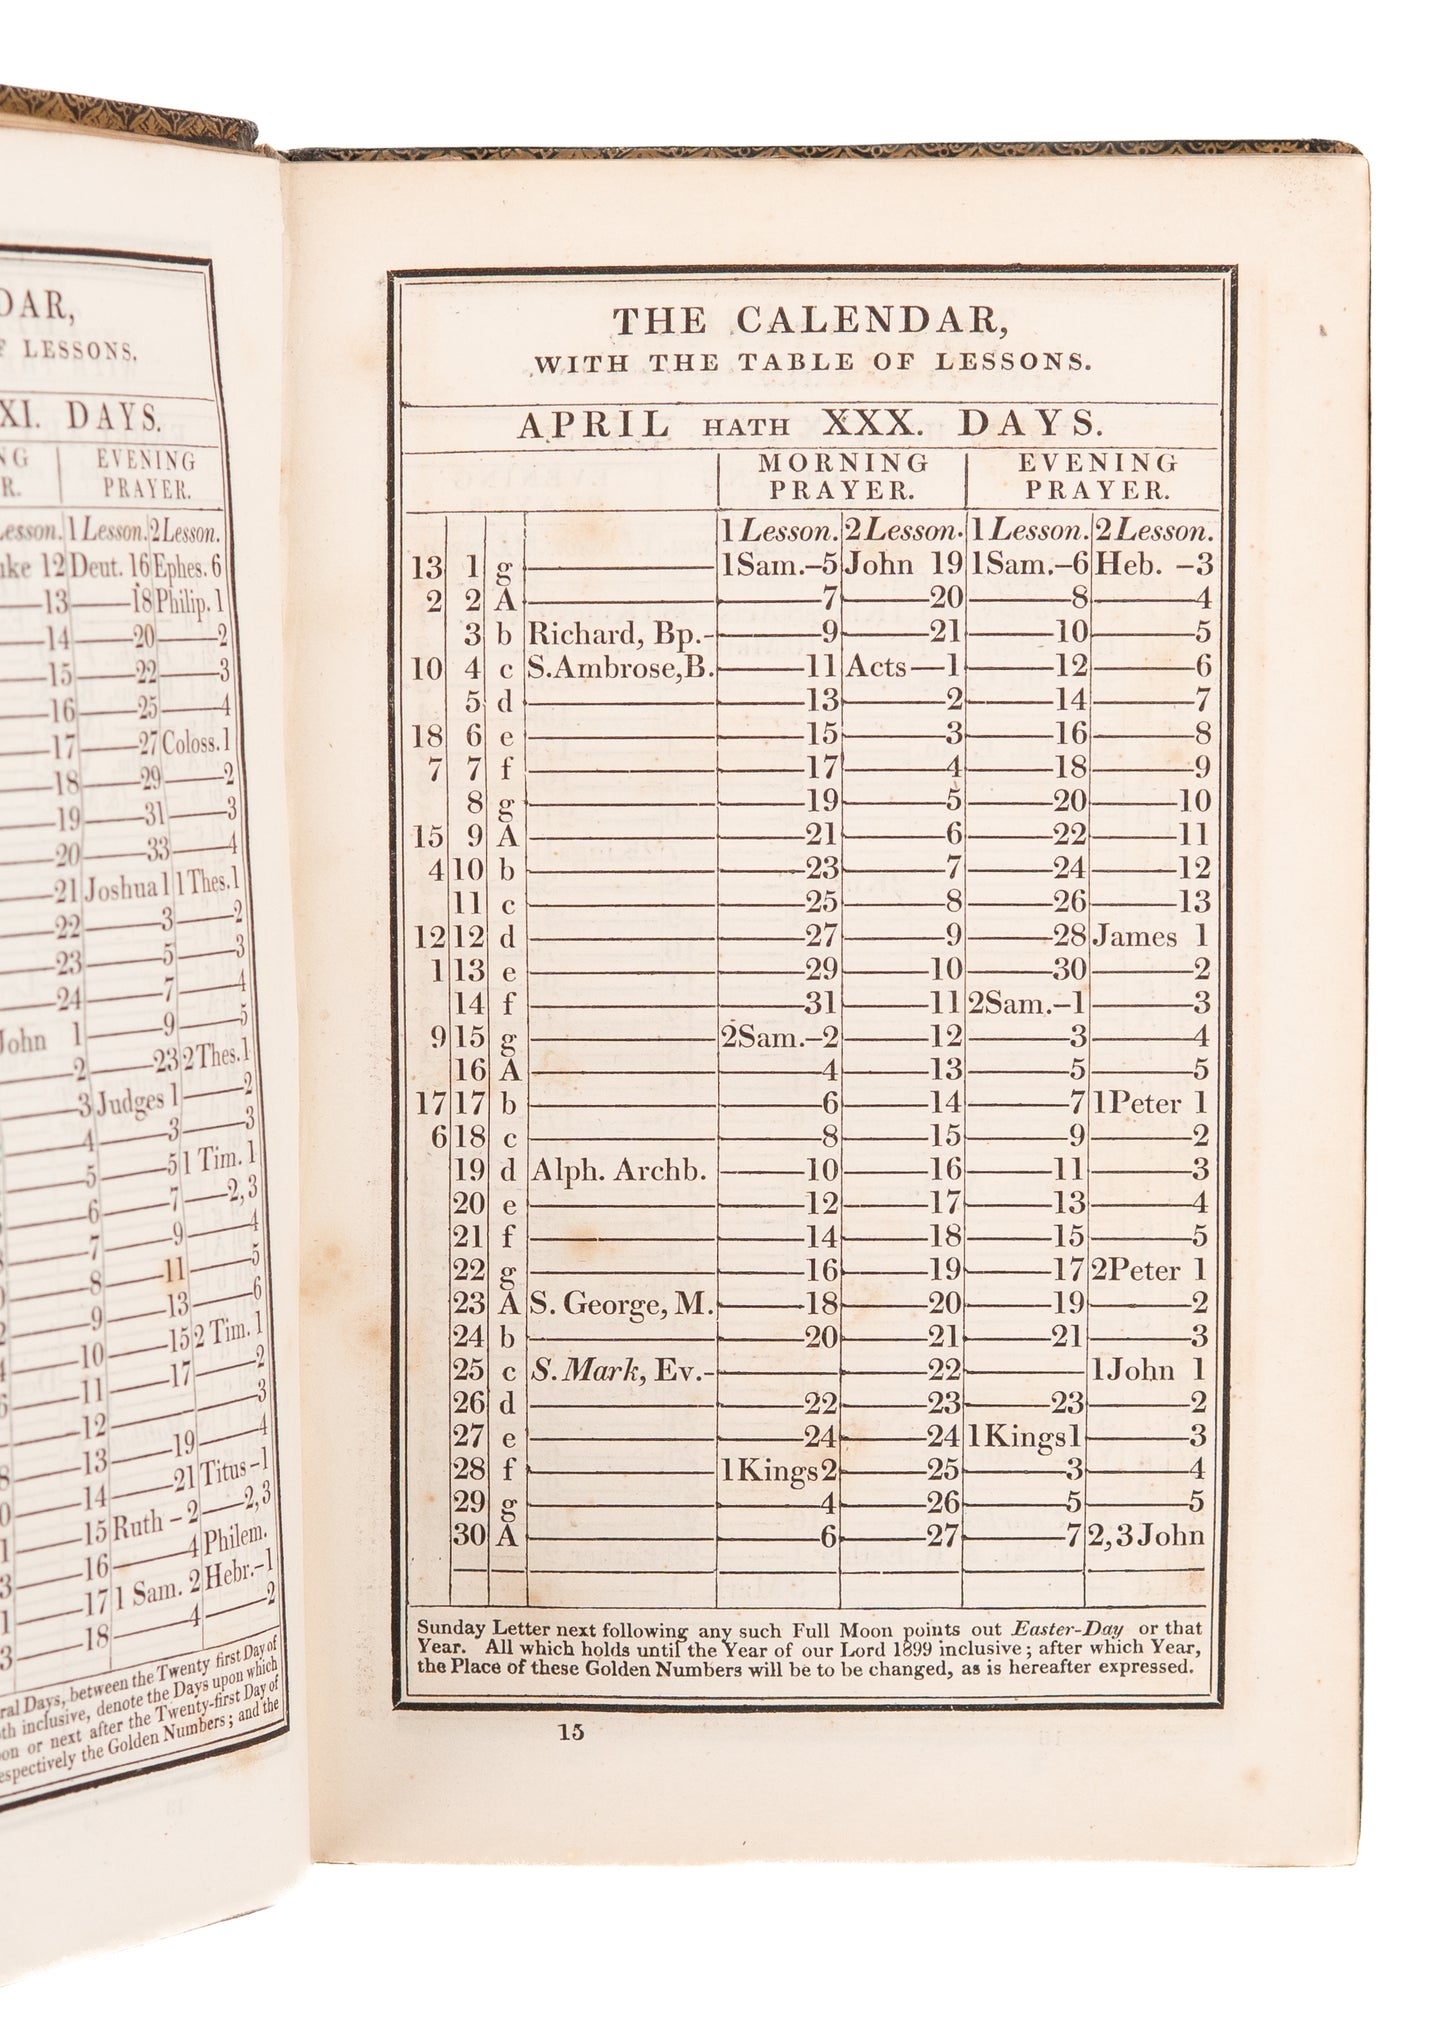 DAR,
F LESSONS.
XI. DAYS.
NG | EVENING
R. | PRAYER.
Lesson. 1 Lesson. 2 Lesson.
uke 12 Deut. 16 Ephes. 6
—13 —18 Philip. 1
—14 —20 —2
—15 —22 —3
—16 —25 —4
—17 —27 Coloss. 1
—18 —29 —2
—19 —31 —3
—20 —33 —4
—21 Joshua 1 1 Thes. 1
—22 —3 —2
—23 —5 —3
—24 —7 —4
John 1 —9 —5
—2 —23 2 Thes. 1
—3 Judges 1 —2
—4 —3 —3
—5 —5 1 Tim. 1
—6 —7 —2, 3
—7 —9 —4
—8 —11 —5
—9 —13 —6
—10 —15 2 Tim. 1
—11 —17 —2
—12 — —3
—13 —19 —4
—14 —21 Titus –1
—15 Ruth – 2 —2, 3
—16 —4 Philem.
—17 1 Sam. 2 Hebr.–1
—18 —4 —2
ral Days, between the Twenty first Day of
th inclusive, denote the Days upon which
on or next after the Twenty-first Day of
espectively the Golden Numbers; and the
THE CALENDAR,
WITH THE TABLE OF LESSONS.
APRIL HATH XXX. DAYS.
MORNING | EVENING
PRAYER. | PRAYER.
1 Lesson. 2 Lesson. 1 Lesson. 2 Lesson.
13 1 g — 1Sam.–5 John 19 1Sam.–6 Heb. –3
2 2 A — —7 —20 —8 —4
3 b Richard, Bp.- —9 —21 —10 —5
10 4 c S.Ambrose,B. —11 Acts—1 —12 —6
5 d — —13 —2 —14 —7
18 6 e — —15 —3 —16 —8
7 7 f — —17 —4 —18 —9
8 g — —19 —5 —20 —10
15 9 A — —21 —6 —22 —11
4 10 b — —23 —7 —24 —12
11 c — —25 —8 —26 —13
12 12 d — —27 —9 —28 James 1
1 13 e — —29 —10 —30 —2
14 f — —31 —11 2Sam.–1 —3
9 15 g — 2Sam.–2 —12 —3 —4
16 A — —4 —13 —5 —5
17 17 b — —6 —14 —7 1Peter 1
6 18 c — —8 —15 —9 —2
19 d Alph. Archb. —10 —16 —11 —3
20 e — —12 —17 —13 —4
21 f — —14 —18 —15 —5
22 g — —16 —19 —17 2Peter 1
23 A S. George, M. —18 —20 —19 —2
24 b — —20 —21 —21 —3
25 c S. Mark, Ev.- — —22 — 1John 1
26 d — —22 —23 —23 —2
27 e — —24 —24 1Kings1 —3
28 f — 1Kings2 —25 —3 —4
29 g — —4 —26 —5 —5
30 A — —6 —27 —7 2, 3 John
Sunday Letter next following any such Full Moon points out Easter-Day or that
Year. All which holds until the Year of our Lord 1899 inclusive; after which Year,
the Place of these Golden Numbers will be to be changed, as is hereafter expressed.
15